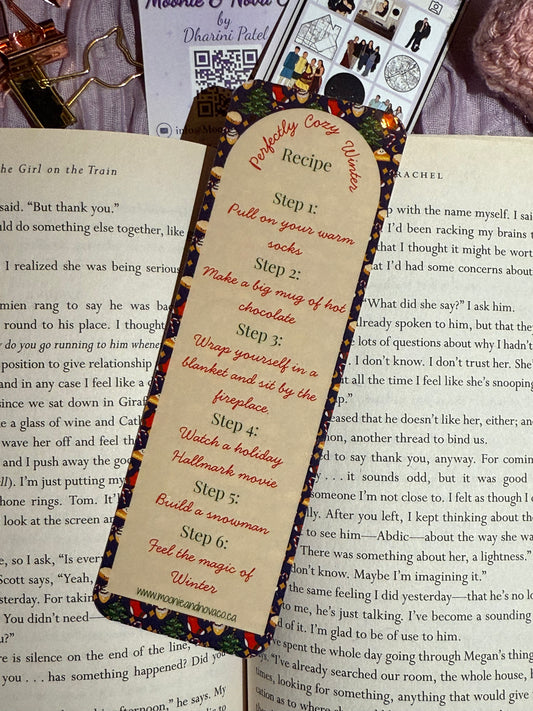 Moonie & Nova C
by
Dharini Patel
he Girl on the Train
said. "But thank you."
uld do something else together, like
I realized she was being serious
mien rang to say he was ba
round to his place. I thought
do you go running to him whene
position to give relationship
and in any case I feel like a c
since we sat down in Giraf
e a glass of wine and Cath
wave her off and feel th
and I push away the goo
ll). I'm just putting my
hone rings. Tom. It'
look at the screen an
e, so I ask, "Is every
Scott says, "Yeah,
sterday. For takin
You didn't need—
u?"
re is silence on the end of the line,
you . . . has something happened? Did you
afternoon," he says. My
Perfectly Cozy Winter
Recipe
Step 1:
Pull on your warm
socks
Step 2:
Make a big mug of hot
chocolate
Step 3:
Wrap yourself in a
blanket and sit by the
fireplace.
Step 4:
Watch a holiday
Hallmark movie
Step 5:
Build a snowman
Step 6:
Feel the magic of
Winter
www.moonieandnovaco.ca
RACHEL
p with the name myself. I sai
I'd been racking my brains t
that I thought it might be wort
at I'd had some concerns about
"What did she say?" I ask him.
lready spoken to him, but that they
lots of questions about why I hadn't
I don't know. I don't trust her. She
at all the time I feel like she's snooping
p."
eased that he doesn't like her, either; an
on, another thread to bind us.
ed to say thank you, anyway. For comin
. . . it sounds odd, but it was good
someone I'm not close to. I felt as though I c
lly. After you left, I kept thinking about the
to see him—Abdic—about the way she wa
There was something about her, a lightness."
don't know. Maybe I'm imagining it."
the same feeling I did yesterday—that he's no lo
to me, he's just talking. I've become a sounding
d of it. I'm glad to be of use to him.
ve spent the whole day going through Megan's thing
s. "I've already searched our room, the whole house, h
times, looking for something, anything that would give
cation as to where sh